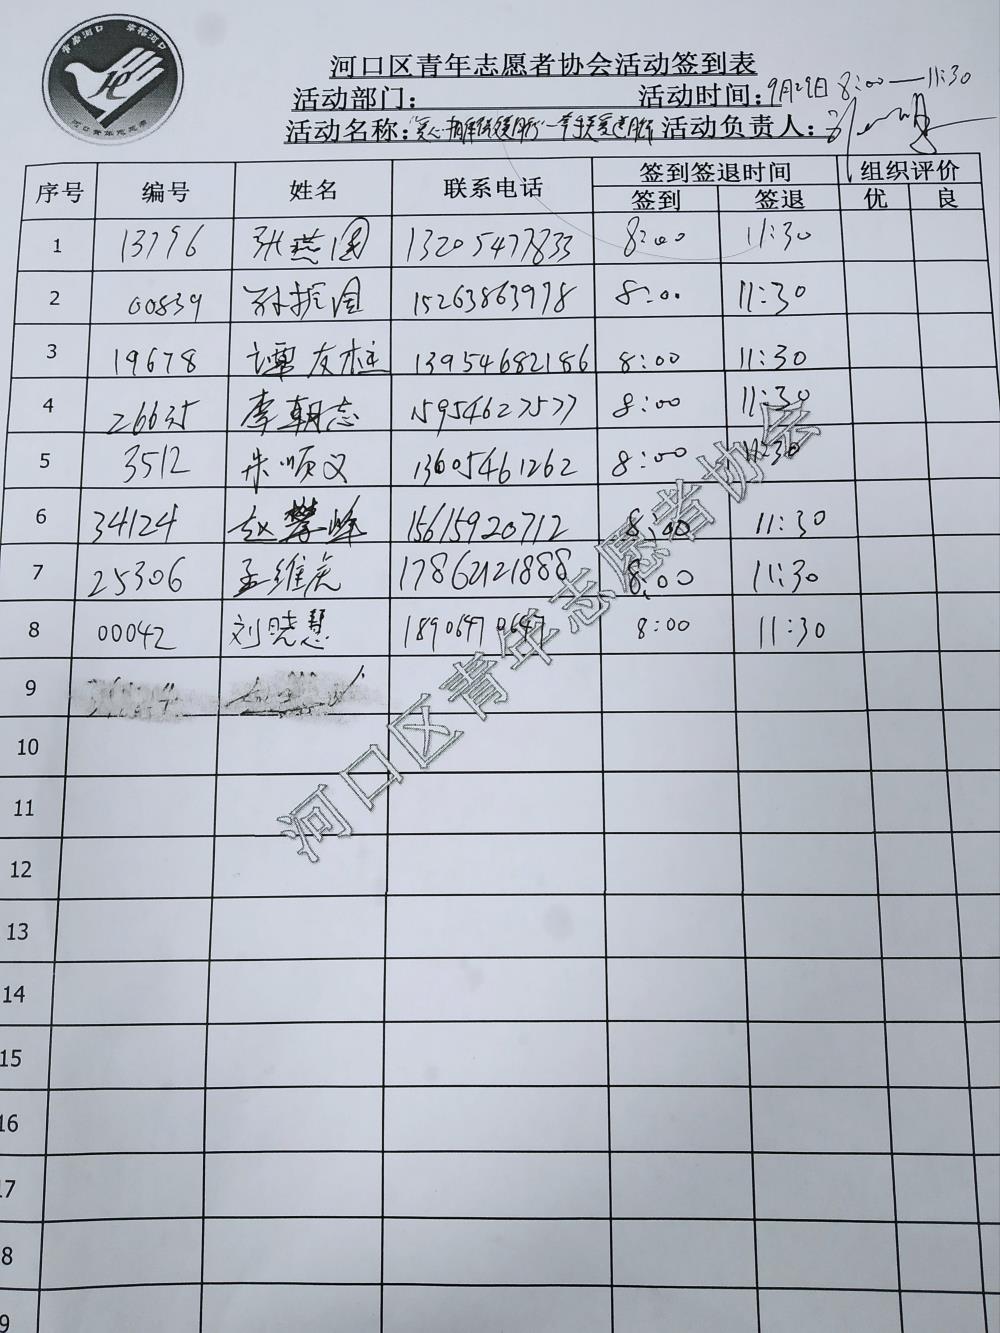 青春河口 幸福河口
河口青年志愿者
河口区青年志愿者协会活动签到表
活动部门： 活动时间：9月29日 8:00—11:30
活动名称： 活动负责人：
序号 编号 姓名 联系电话 签到签退时间 组织评价
签到 签退 优 良
1 13796 张燕国 13205477833 8:00 11:30
2 00839 孙振国 15263863978 8:00 11:30
3 19678 谭友柱 13954682186 8:00 11:30
4 26635 李朝志 15954627577 8:00 11:30
5 3512 朱顺义 13605461262 8:00 11:30
6 34124 赵攀峰 15615920712 8:00 11:30
7 25306 孟维亮 17862121888 8:00 11:30
8 00042 刘晓慧 18906470647 8:00 11:30
9
10
11
12
13
14
15
16
17
8
9
河口区青年志愿者协会